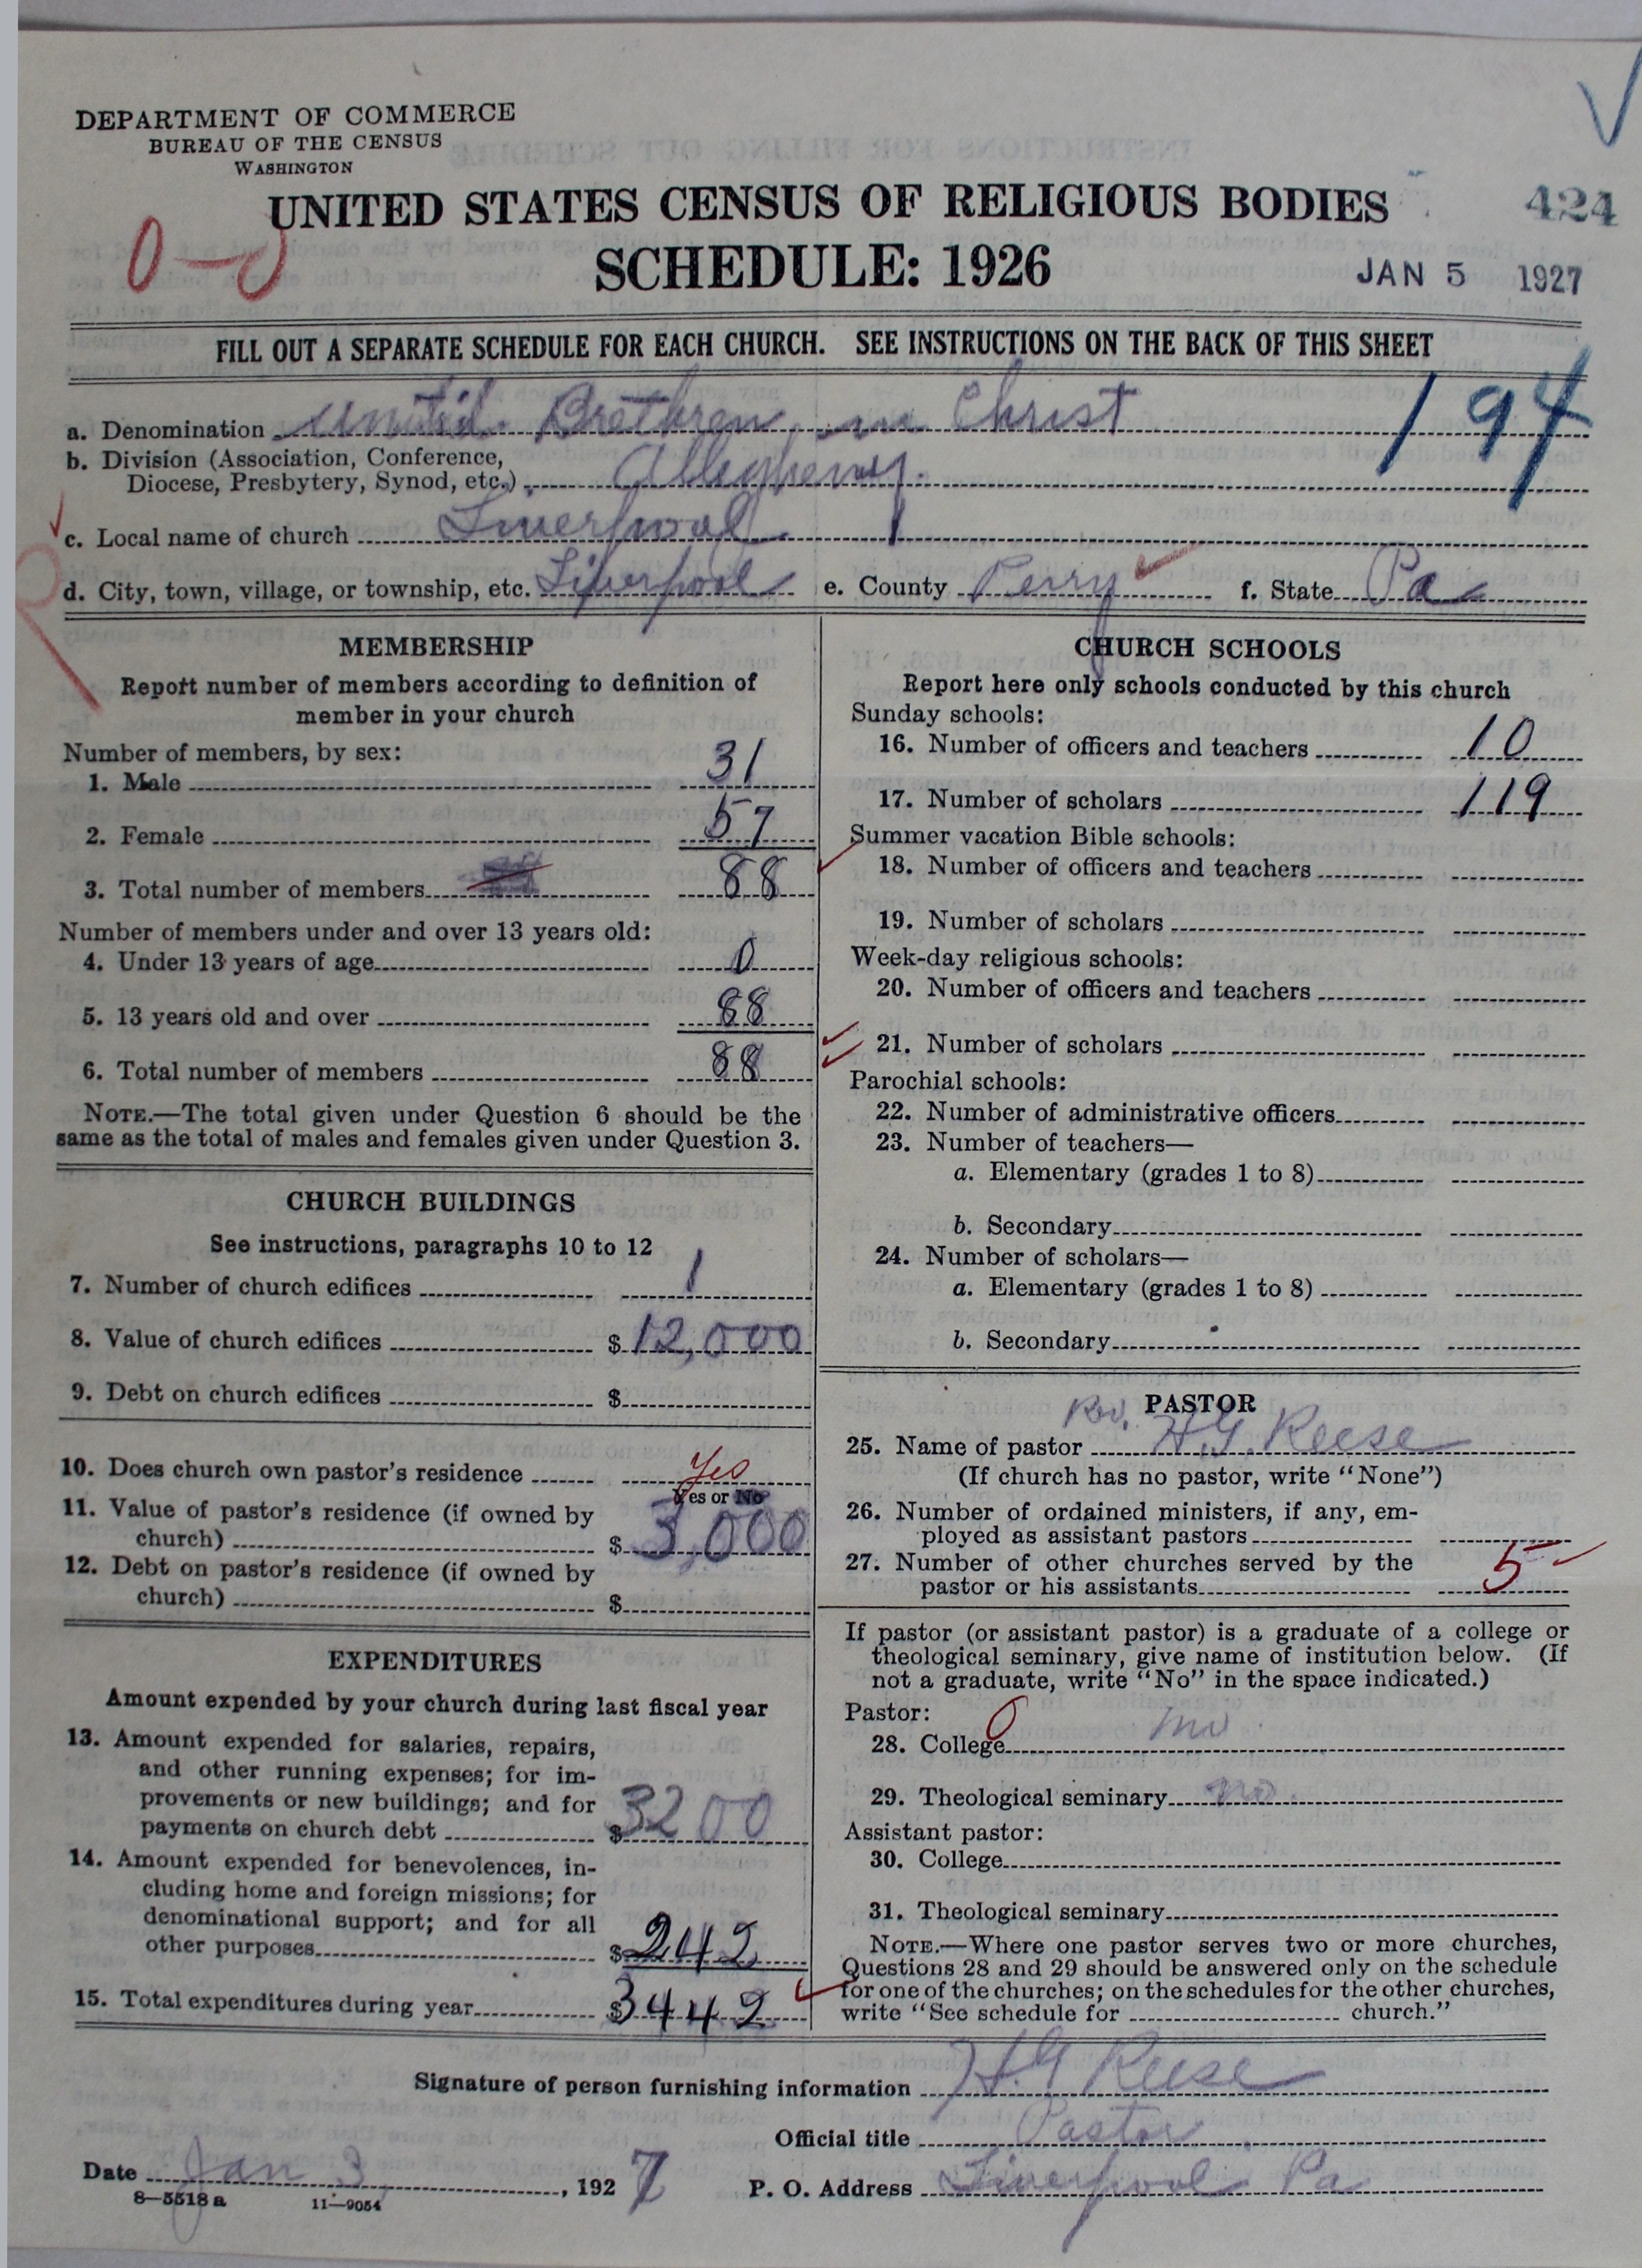 DEPARTMENT OF COMMERCE
BUREAU OF THE CENSUS
WASHINGTON
UNITED STATES CENSUS OF RELIGIOUS BODIES
424
SCHEDULE: 1926
JAN 5 1927
FILL OUT A SEPARATE SCHEDULE FOR EACH CHURCH. SEE INSTRUCTIONS ON THE BACK OF THIS SHEET
194
a. Denomination United Brethren in Christ
b. Division (Association, Conference,
Diocese, Presbytery, Synod, etc.) Allegheny.
c. Local name of church Liverpool
d. City, town, village, or township, etc. Liverpool e. County Perry f. State Pa
MEMBERSHIP
Report number of members according to definition of
member in your church
Number of members, by sex:
1. Male 31
2. Female 57
3. Total number of members 88
Number of members under and over 13 years old:
4. Under 13 years of age 0
5. 13 years old and over 88
6. Total number of members 88
NOTE.—The total given under Question 6 should be the
same as the total of males and females given under Question 3.
CHURCH BUILDINGS
See instructions, paragraphs 10 to 12
7. Number of church edifices 1
8. Value of church edifices $12,000
9. Debt on church edifices $
10. Does church own pastor's residence Yes
Yes or No
11. Value of pastor's residence (if owned by
church) $3,000
12. Debt on pastor's residence (if owned by
church) $
EXPENDITURES
Amount expended by your church during last fiscal year
13. Amount expended for salaries, repairs,
and other running expenses; for im-
provements or new buildings; and for
payments on church debt $3200
14. Amount expended for benevolences, in-
cluding home and foreign missions; for
denominational support; and for all
other purposes $242
15. Total expenditures during year $3442
CHURCH SCHOOLS
Report here only schools conducted by this church
Sunday schools:
16. Number of officers and teachers 10
17. Number of scholars 119
Summer vacation Bible schools:
18. Number of officers and teachers
19. Number of scholars
Week-day religious schools:
20. Number of officers and teachers
21. Number of scholars
Parochial schools:
22. Number of administrative officers
23. Number of teachers—
a. Elementary (grades 1 to 8)
b. Secondary
24. Number of scholars—
a. Elementary (grades 1 to 8)
b. Secondary
PASTOR
25. Name of pastor Rev. H.G. Reese
(If church has no pastor, write "None")
26. Number of ordained ministers, if any, em-
ployed as assistant pastors
27. Number of other churches served by the
pastor or his assistants 5
If pastor (or assistant pastor) is a graduate of a college or
theological seminary, give name of institution below. (If
not a graduate, write "No" in the space indicated.)
Pastor:
28. College no
29. Theological seminary no
Assistant pastor:
30. College
31. Theological seminary
NOTE.—Where one pastor serves two or more churches,
Questions 28 and 29 should be answered only on the schedule
for one of the churches; on the schedules for the other churches,
write "See schedule for church."
Signature of person furnishing information H.G Reese
Official title Pastor
Date Jan 3, 1927 P. O. Address Liverpool Pa
8—5518 a 11—9054